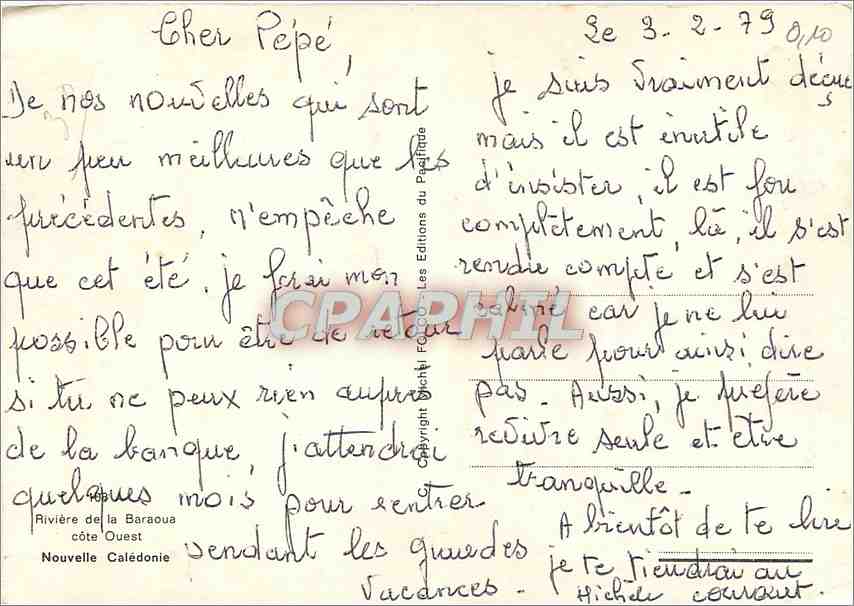 Cher Pépé,
De nos nouvelles qui sont
un peu meilleures que les
précédentes, n'empêche
que cet été, je ferai mon
possible pour être de retour
si tu ne peux rien aupres
de la banque, j'attendrai
quelques mois pour rentrer
pendant les grandes
vacances -
Le 3-2-79
0,10
je suis vraiment déçue
mais il est inutile
d'insister, il est fou
complètement, là, il s'est
rendu compte et s'est
calmé car je ne lui
parle pour ainsi dire
pas - Aussi, je préfère
revivre seule et être
tranquille -
A bientôt de te lire
je te tiendrai au
courant.
Michèle
© Copyright Michel FOLCO Les Editions du Pacifique
Rivière de la Baraoua
côte Ouest
Nouvelle Calédonie
CPAPHIL